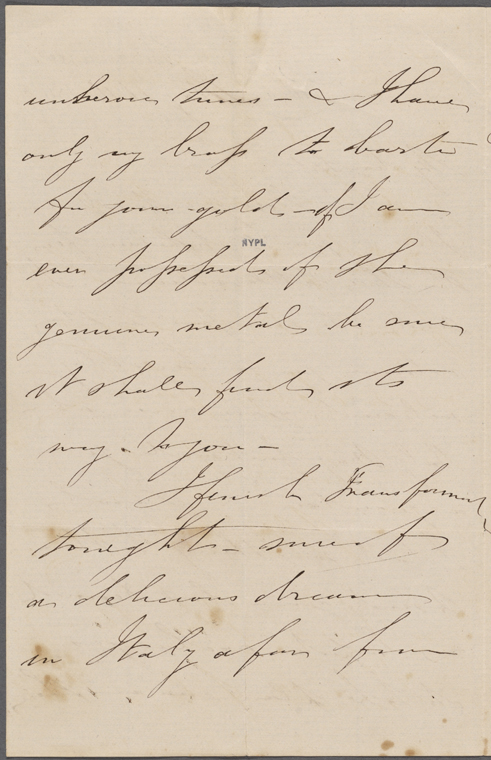 times - & I have
only my brass to barter
for your gold - if I am
ever possessed of the
NYPL
genuine metal be sure
it shall find its
way to you -
I finish Transformat
tonight -
a delicious dream
in Italy afar from